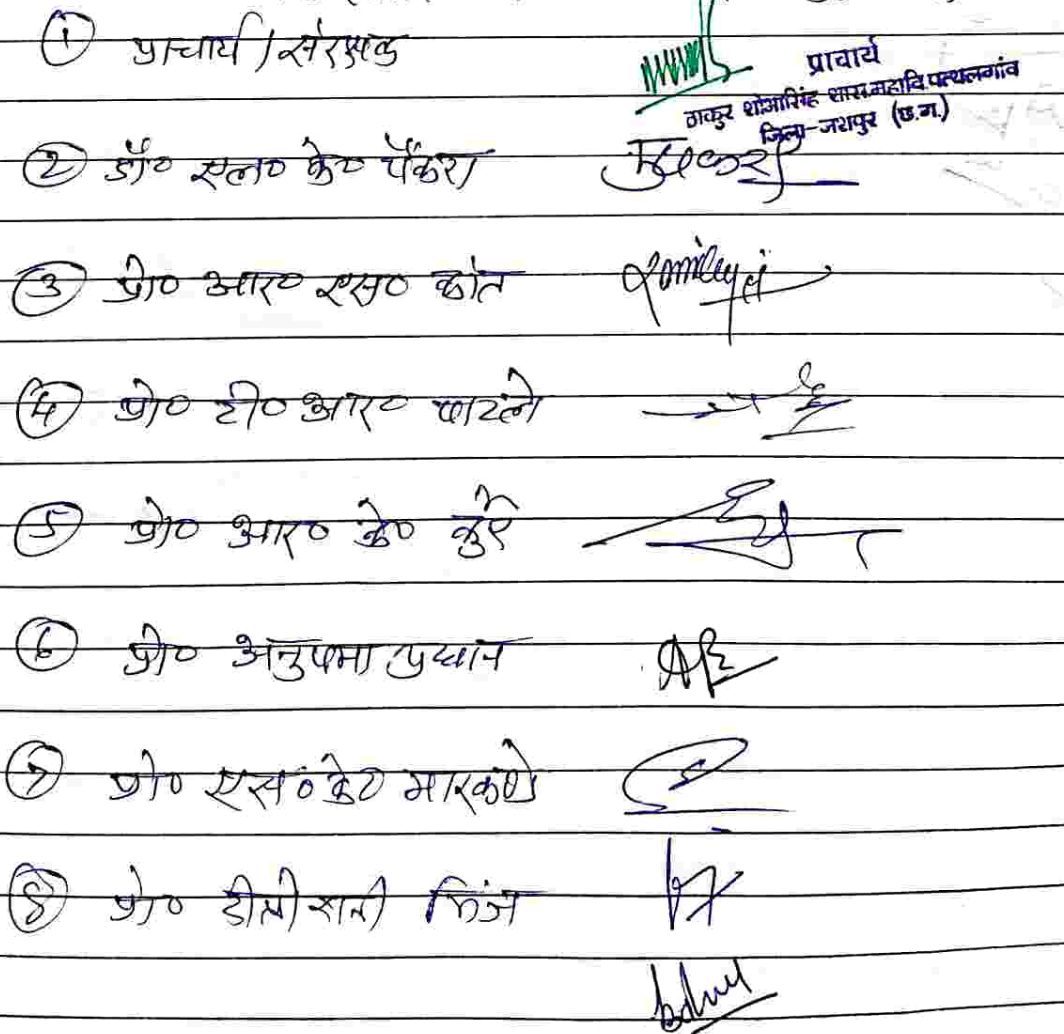 ① प्राचार्य / संरक्षक
प्राचार्य
ठाकुर शोभासिंह शास.महावि.पत्थलगांव
जिला-जशपुर (छ.ग.)
② डॉ० एल० के० पैंकरा
③ प्रो० आर० एस० कांत
④ प्रो० टी० आर० पाटले
⑤ प्रो० आर० के० कुर्रे
⑥ प्रो० अनुपमा प्रधान
⑦ प्रो० एस० के० मारकण्डे
⑧ प्रो०